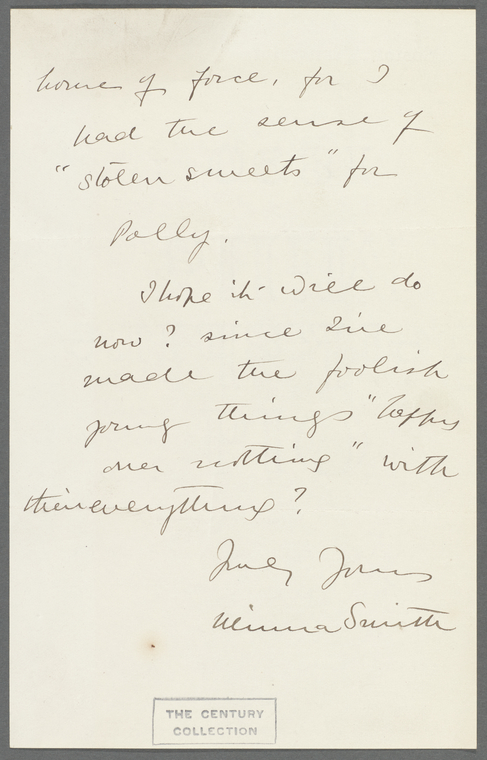 home of force, for I
had the sense of
"stolen sweets" for
Polly.
I hope it will do
now? since I've
made the foolish
young things "happy
over nothing" with
their everything?
Truly Yours
Minna Smith
THE CENTURY
COLLECTION